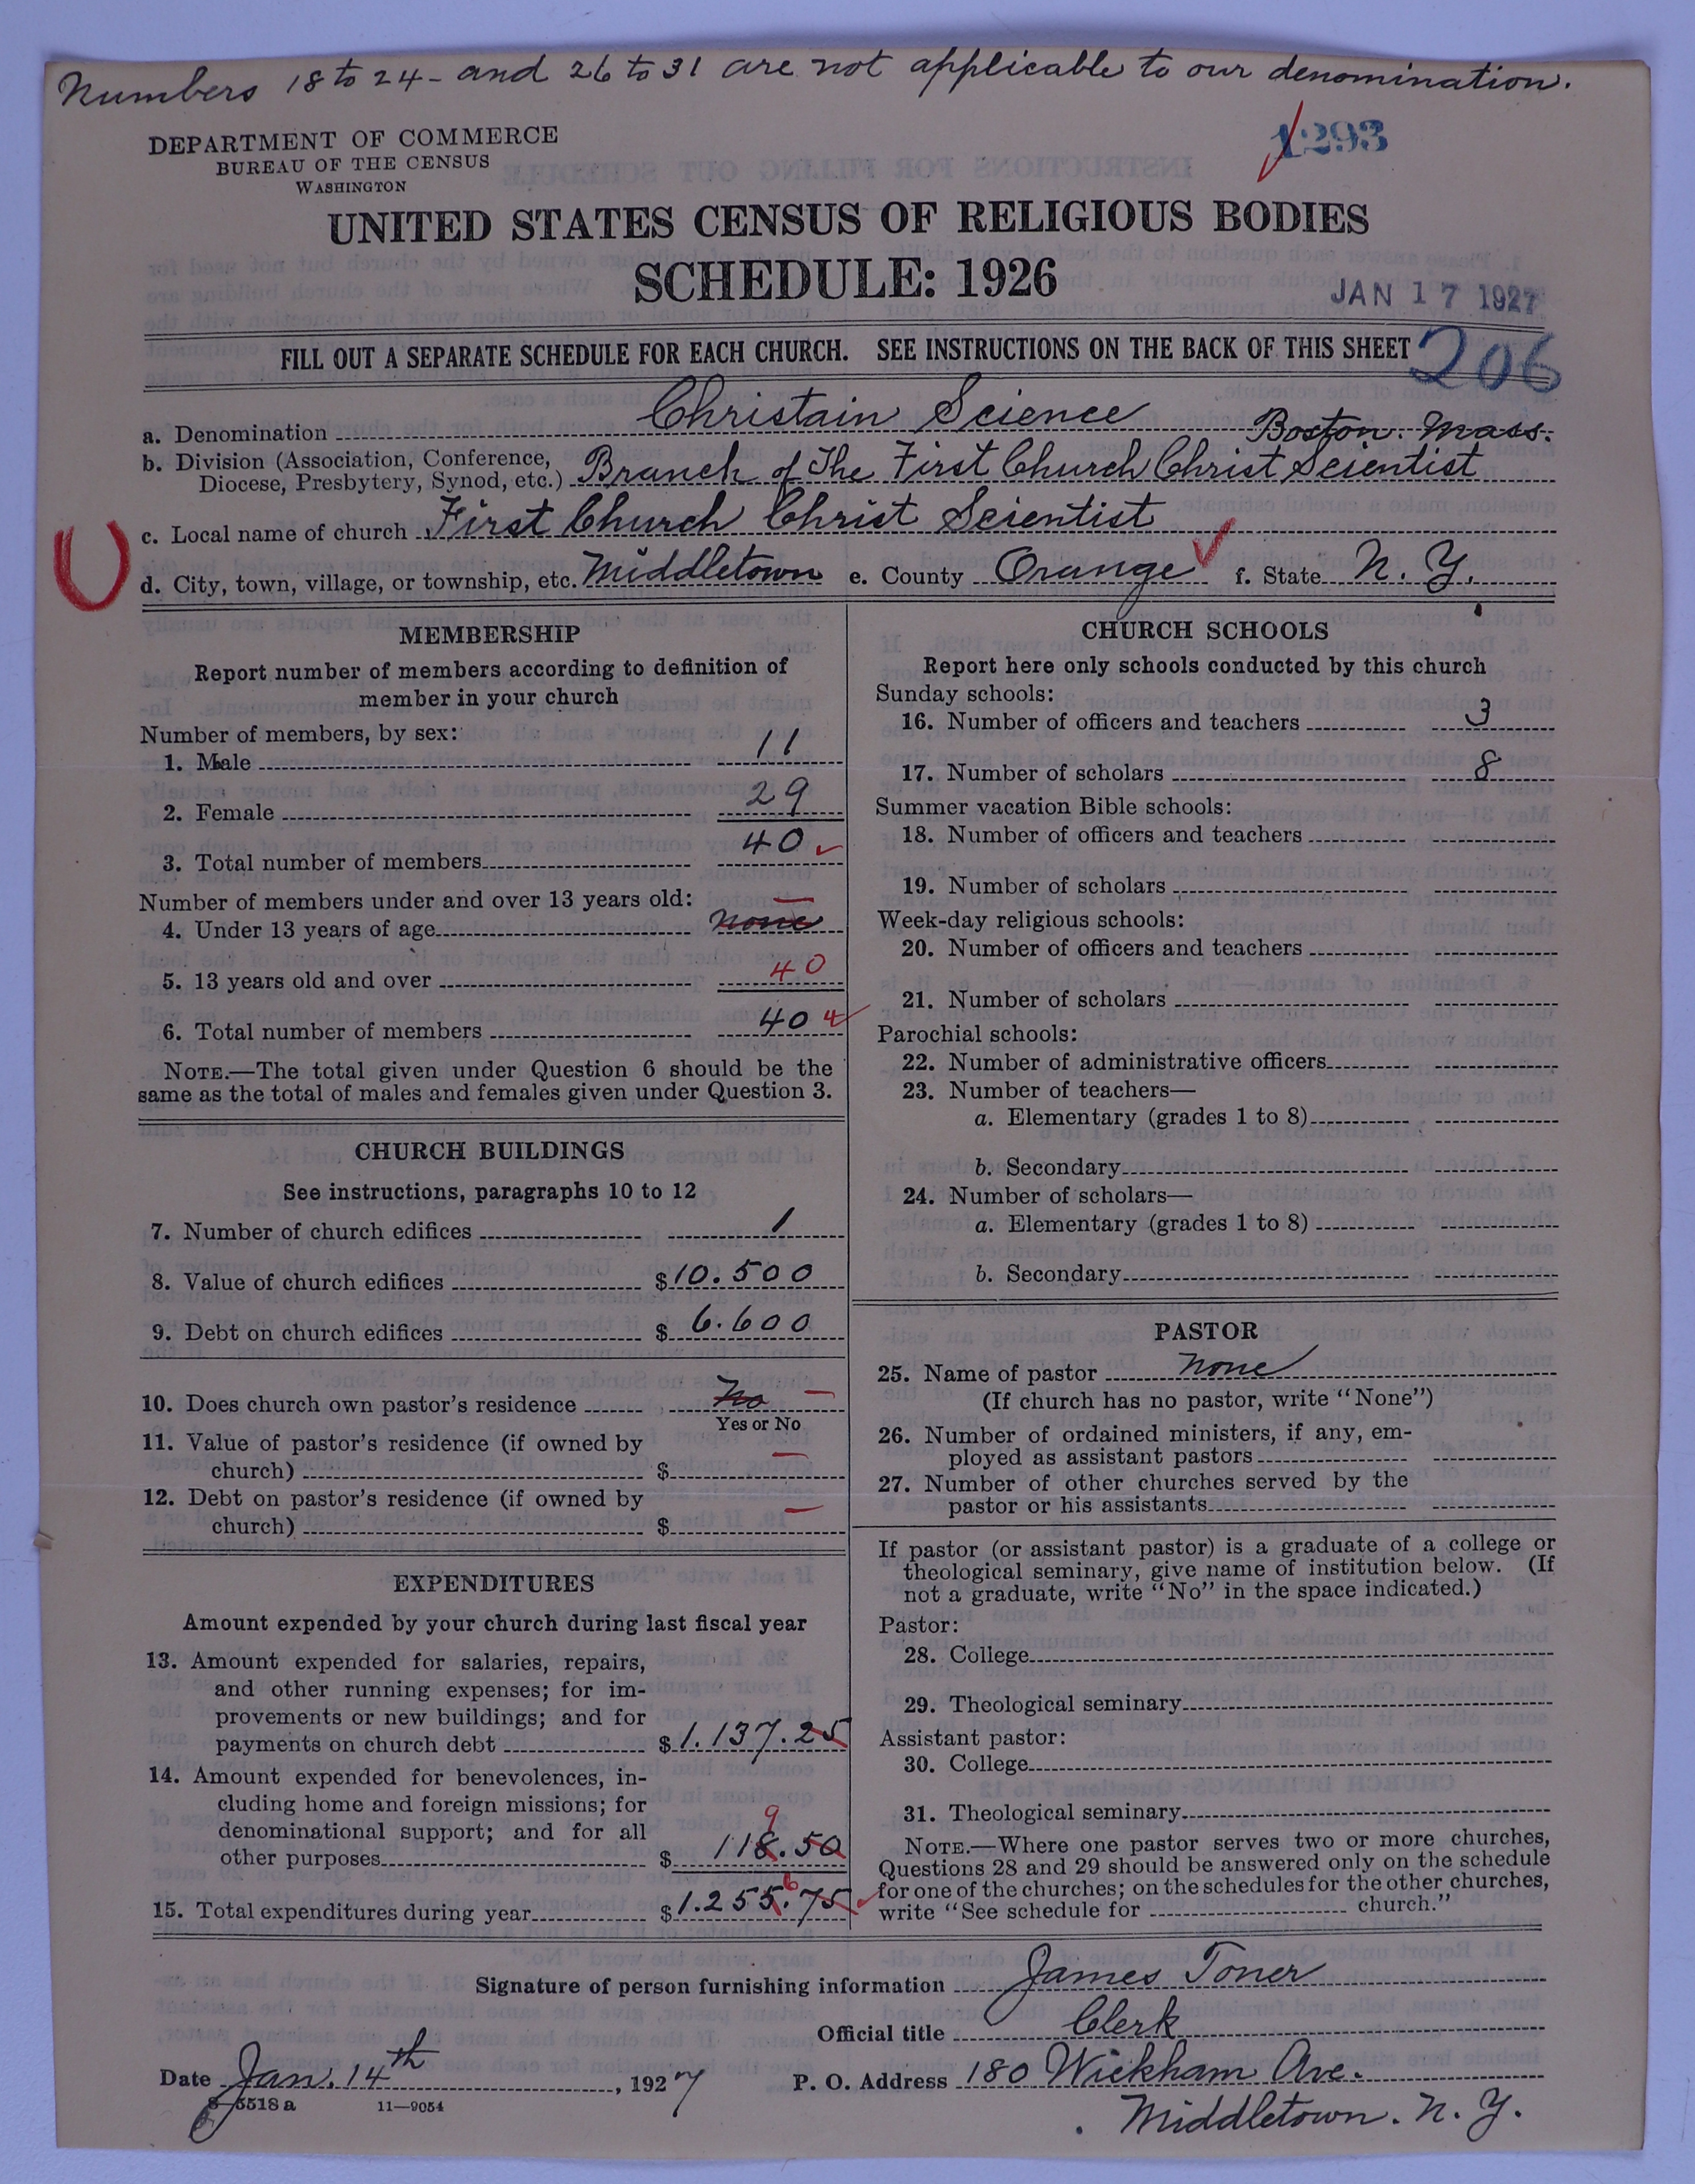 Numbers 18 to 24 - and 26 to 31 are not applicable to our denomination.
DEPARTMENT OF COMMERCE
BUREAU OF THE CENSUS
WASHINGTON
1293
UNITED STATES CENSUS OF RELIGIOUS BODIES
SCHEDULE: 1926
JAN 17 1927
FILL OUT A SEPARATE SCHEDULE FOR EACH CHURCH. SEE INSTRUCTIONS ON THE BACK OF THIS SHEET
206
a. Denomination Christain Science Boston. Mass.
b. Division (Association, Conference, Diocese, Presbytery, Synod, etc.) Branch of The First Church Christ Scientist
c. Local name of church First Church Christ Scientist
d. City, town, village, or township, etc. Middletown e. County Orange f. State N. Y.
MEMBERSHIP
Report number of members according to definition of
member in your church
Number of members, by sex:
1. Male 11
2. Female 29
3. Total number of members 40
Number of members under and over 13 years old:
4. Under 13 years of age none
5. 13 years old and over 40
6. Total number of members 40
NOTE.—The total given under Question 6 should be the
same as the total of males and females given under Question 3.
CHURCH BUILDINGS
See instructions, paragraphs 10 to 12
7. Number of church edifices 1
8. Value of church edifices $10.500
9. Debt on church edifices $6.600
10. Does church own pastor's residence No
Yes or No
11. Value of pastor's residence (if owned by
church) $
12. Debt on pastor's residence (if owned by
church) $
EXPENDITURES
Amount expended by your church during last fiscal year
13. Amount expended for salaries, repairs,
and other running expenses; for im-
provements or new buildings; and for
payments on church debt $1.137.25
14. Amount expended for benevolences, in-
cluding home and foreign missions; for
denominational support; and for all
9
other purposes $118.50
6
15. Total expenditures during year $1.255.75
CHURCH SCHOOLS
Report here only schools conducted by this church
Sunday schools:
16. Number of officers and teachers 3
17. Number of scholars 8
Summer vacation Bible schools:
18. Number of officers and teachers
19. Number of scholars
Week-day religious schools:
20. Number of officers and teachers
21. Number of scholars
Parochial schools:
22. Number of administrative officers
23. Number of teachers—
a. Elementary (grades 1 to 8)
b. Secondary
24. Number of scholars—
a. Elementary (grades 1 to 8)
b. Secondary
PASTOR
25. Name of pastor none
(If church has no pastor, write "None")
26. Number of ordained ministers, if any, em-
ployed as assistant pastors
27. Number of other churches served by the
pastor or his assistants
If pastor (or assistant pastor) is a graduate of a college or
theological seminary, give name of institution below. (If
not a graduate, write "No" in the space indicated.)
Pastor:
28. College
29. Theological seminary
Assistant pastor:
30. College
31. Theological seminary
NOTE.—Where one pastor serves two or more churches,
Questions 28 and 29 should be answered only on the schedule
for one of the churches; on the schedules for the other churches,
write "See schedule for church."
Signature of person furnishing information James Toner
Official title Clerk
Date Jan. 14th, 1927 P. O. Address 180 Wickham Ave.
Middletown. N. Y.
8—5518a 11—9054